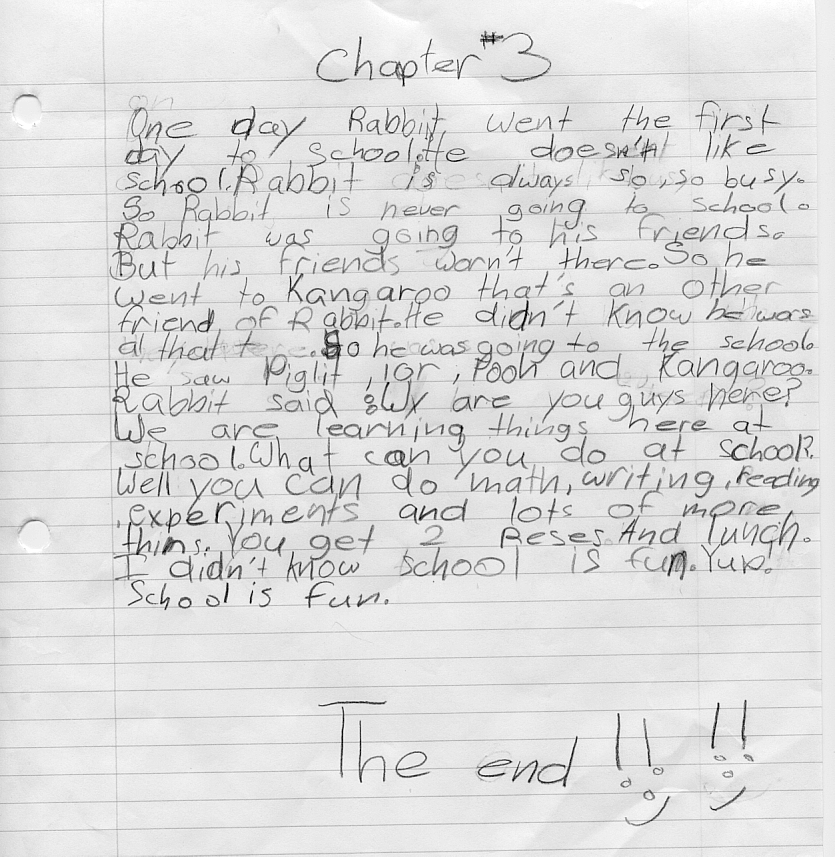 Chapter #3
One day Rabbit went the first
day to school.He doesn't like
school.Rabbit is always so, so busy.
So Rabbit is never going to school.
Rabbit was going to his friends.
But his friends worn't there.So he
went to Kangaroo that's an other
friend of Rabbit.He didn't know he was
at that .So he was going to the school.
He saw Piglit, Ior, Pooh and Kangaroo.
Rabbit said are you guys here?
We are learning things here at
school.What can you do at school?
Well you can do math, writing, reading
, experiments and lots of more
thins. You get 2 Reses And lunch.
I didn't know school is fun.Yup!
School is fun.
The end !! !!